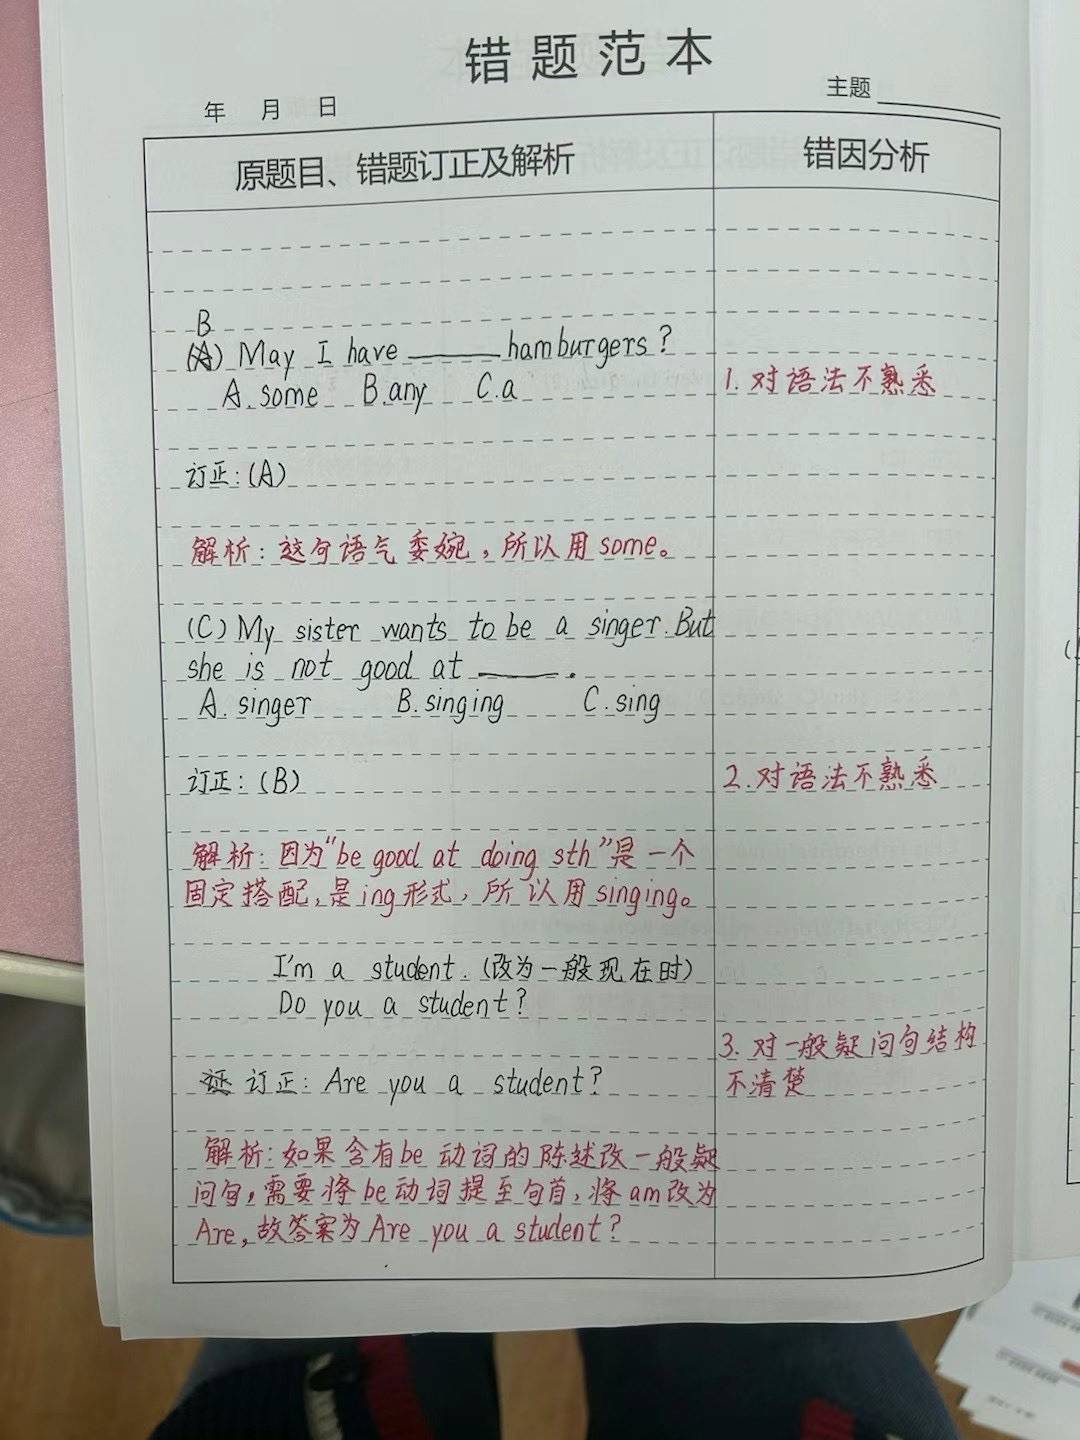 错题范本
年 月 日
主题
原题目、错题订正及解析
错因分析
B
(A) May I have ______ hamburgers?
A. some B. any C. a
1. 对语法不熟悉
订正: (A)
解析: 这句语气委婉, 所以用 some。
(C) My sister wants to be a singer. But
she is not good at ______.
A. singer B. singing C. sing
订正: (B)
2. 对语法不熟悉
解析: 因为“be good at doing sth”是一个
固定搭配, 是ing形式, 所以用singing。
I'm a student. (改为一般现在时)
Do you a student?
3. 对一般疑问句结构
不清楚
订正: Are you a student?
解析: 如果含有be动词的陈述改一般疑
问句, 需要将be动词提至句首, 将am改为
Are, 故答案为Are you a student?